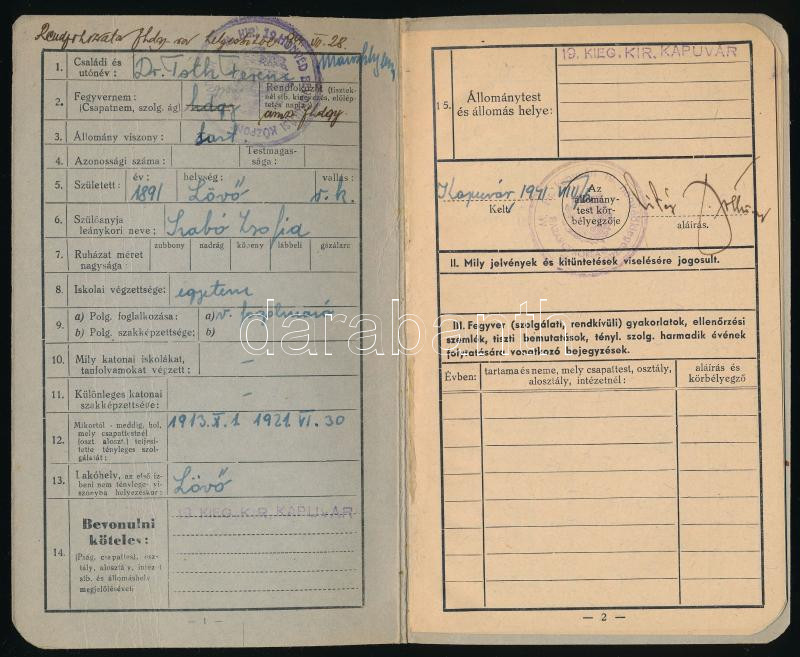 VII. 28.
1. Családi és utónév:
Dr. Tóth Ferenc
2. Fegyvernem: (Csapatnem, szolg. ág)
Rendfokozat (tisztek-
3. Állomány viszony:
4. Azonossági száma:
Testmagas-
sága:
5. Született:
év:
helység:
vallás:
1891
Lövő
r. k.
6. Szülőanyja
leánykori neve:
Szabó Zsófia
7. Ruházat méret
nagysága:
zubbony
nadrág
köpeny
lábbeli
gázálarc
8. Iskolai végzettsége:
egyetem
9. a) Polg. foglalkozása:
a)
b) Polg. szakképzettsége:
b)
10. Mily katonai iskolákat,
tanfolyamokat végzett:
–
11. Különleges katonai
szakképzettsége:
–
12. Mikortól - meddig, hol,
mely csapattestnél
(oszt. aloszt.) teljesí-
tette tényleges szol-
gálatát:
1913. X. 1 1921. VI. 30
13. Lakóhely, az első íz-
beni nem tényleges vi-
szonyba helyezéskor:
Lövő
14. Bevonulni
köteles:
megjelölésével
19. KIEG. KIR. KAPUVÁR
— 1 —
19. KIEG. KIR. KAPUVÁR
15. Állománytest
és állomás helye:
Kapuvár 1941 VIII
Kelt
Az
állomány-
test kör-
bélyegzője
aláírás.
II. Mily jelvények és kitüntetések viselésére jogosult.
III. Fegyver (szolgálati, rendkívüli) gyakorlatok, ellenőrzési
szemlék, tiszti bemutatások, tényl. szolg. harmadik évének
folytatására vonatkozó bejegyzések.
Évben:
tartama és neme, mely csapattest, osztály,
alosztály, intézetnél:
aláírás és
körbélyegző
— 2 —
darabanth